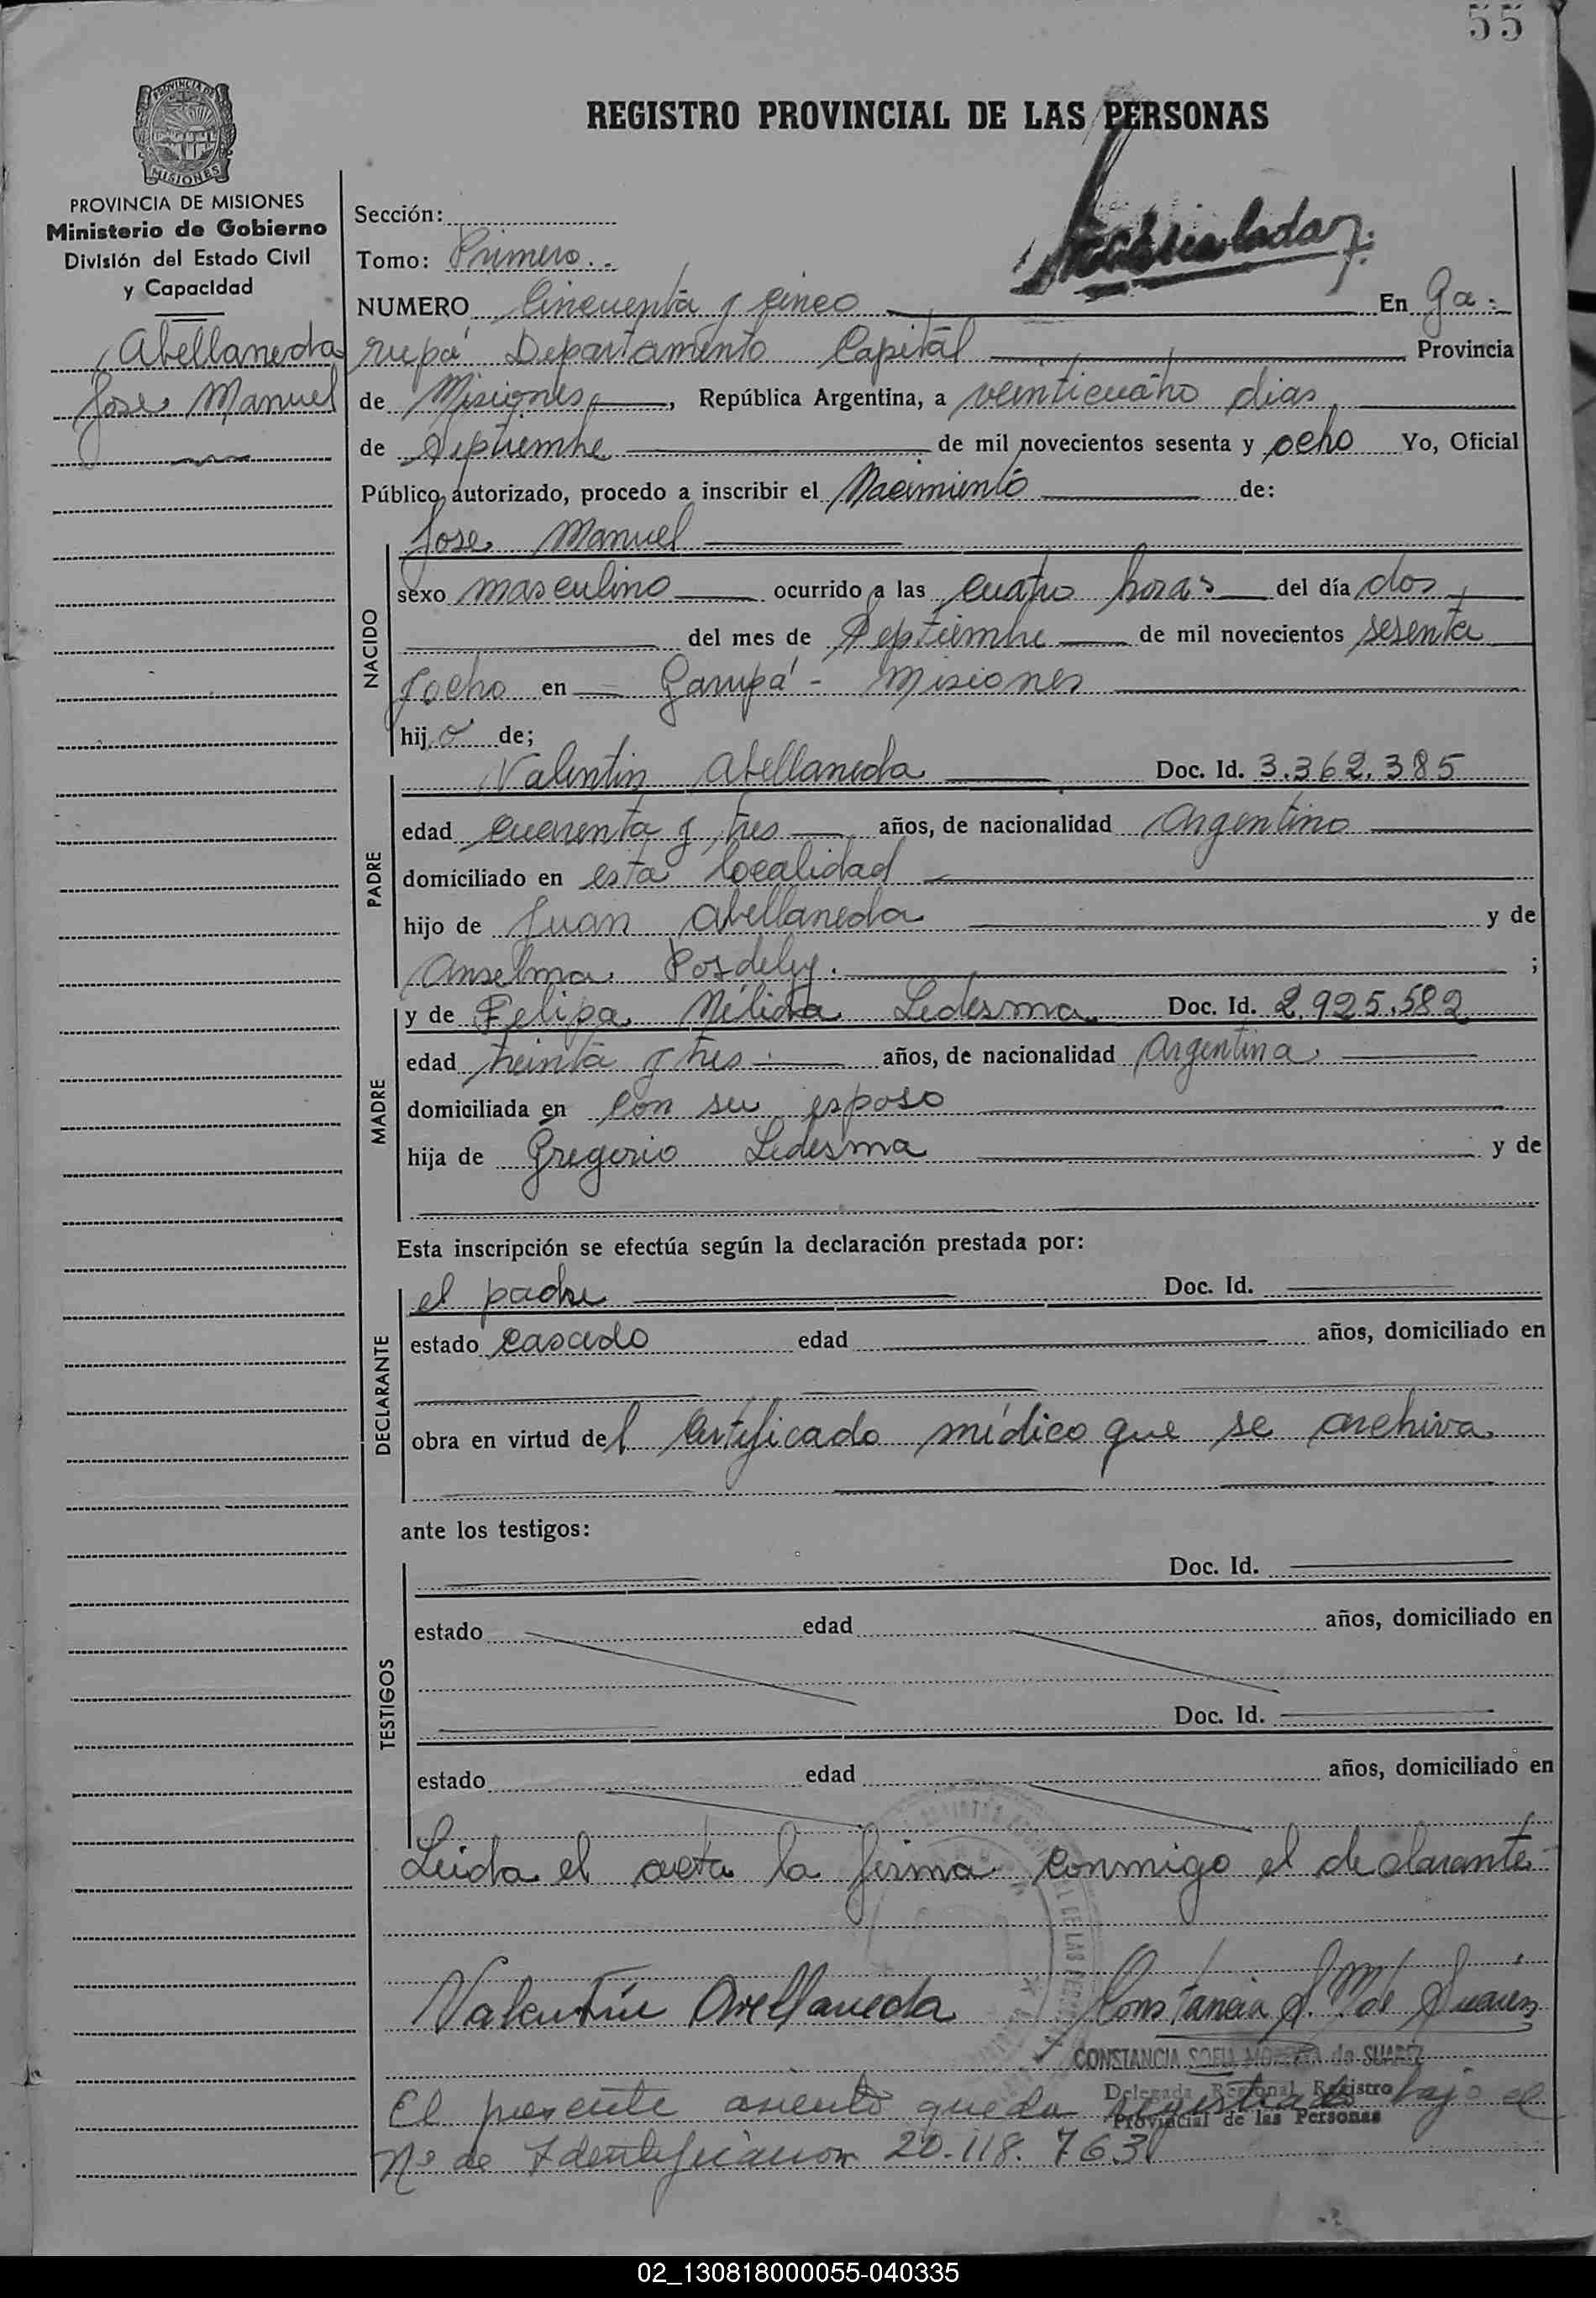 55
PROVINCIA DE
MISIONES
REGISTRO PROVINCIAL DE LAS PERSONAS
PROVINCIA DE MISIONES
Ministerio de Gobierno
División del Estado Civil
y Capacidad
Abellaneda
Jose Manuel
Sección:
Tomo: Primero
NUMERO Cincuenta y cinco En Ga-
rupá Departamento Capital Provincia
de Misiones, República Argentina, a veinticuatro dias
de Septiembre de mil novecientos sesenta y ocho Yo, Oficial
Público autorizado, procedo a inscribir el Nacimiento de:
NACIDO
Jose Manuel
sexo masculino ocurrido a las cuatro horas del día dos
del mes de Septiembre de mil novecientos sesenta
y ocho en Garupá - Misiones
hijo de;
PADRE
Valentin Abellaneda Doc. Id. 3.362.385
edad cuarenta y tres años, de nacionalidad Argentino
domiciliado en esta localidad
hijo de Juan Abellaneda y de
Anselma ;
MADRE
y de Felipa Nélida Ledesma Doc. Id. 2.925.582
edad treinta y tres años, de nacionalidad Argentina
domiciliada en con su esposo
hija de Gregorio Ledesma y de
Esta inscripción se efectúa según la declaración prestada por:
DECLARANTE
el padre Doc. Id.
estado casado edad años, domiciliado en
obra en virtud del certificado médico que se archiva
ante los testigos:
TESTIGOS
Doc. Id.
estado edad años, domiciliado en
Doc. Id.
estado edad años, domiciliado en
Leida el acta la firma conmigo el declarante
Valentín Avellaneda Constancia S. M. de Suarez
CONSTANCIA SOFIA de SUAREZ
Delegada Regional Registro
Provincial de las Personas
El presente asiento queda registrado bajo el
Nº de Identificacion 20.118.763
02_130818000055-040335